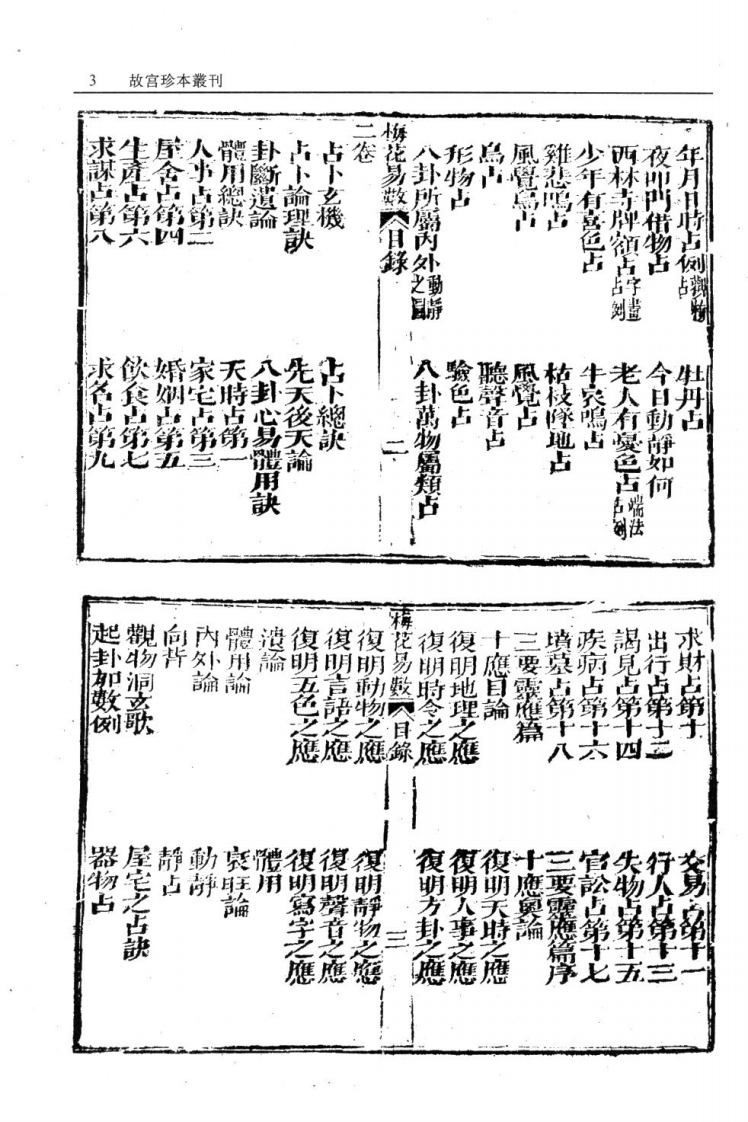 3 故宮珍本叢刊
年月日時占例觀梅占 牡丹占
夜叩門借物占 今日動靜如何
西林寺牌額占字畫占例 老人有憂色占端法占例
少年有喜色占 牛哀鳴占
雞悲鳴占 枯枝墜地占
風覺鳥占 風覺占
鳥占 聽聲音占
形物占 驗色占
八卦所屬內外動靜之圖 八卦萬物屬類占
梅花易數 目錄 二
二卷
占卜玄機 占卜總訣
占卜論理訣 先天後天論
卦斷遺論 八卦心易體用訣
體用總訣 天時占第一
人事占第二 家宅占第三
屋舍占第四 婚姻占第五
生產占第六 飲食占第七
求謀占第八 求名占第九
求財占第十 交易占第十一
出行占第十二 行人占第十三
謁見占第十四 失物占第十五
疾病占第十六 官訟占第十七
墳墓占第十八 三要靈應篇序
三要靈應篇 十應奧論
十應目論 復明天時之應
復明地理之應 復明人事之應
復明時令之應 復明方卦之應
梅花易數 目錄 三
復明動物之應 復明靜物之應
復明言語之應 復明聲音之應
復明五色之應 復明寫字之應
遺論 體用
體用論 衰旺論
內外論 動靜
向背 靜占
觀物洞玄歌 屋宅之占訣
起卦加數例 器物占